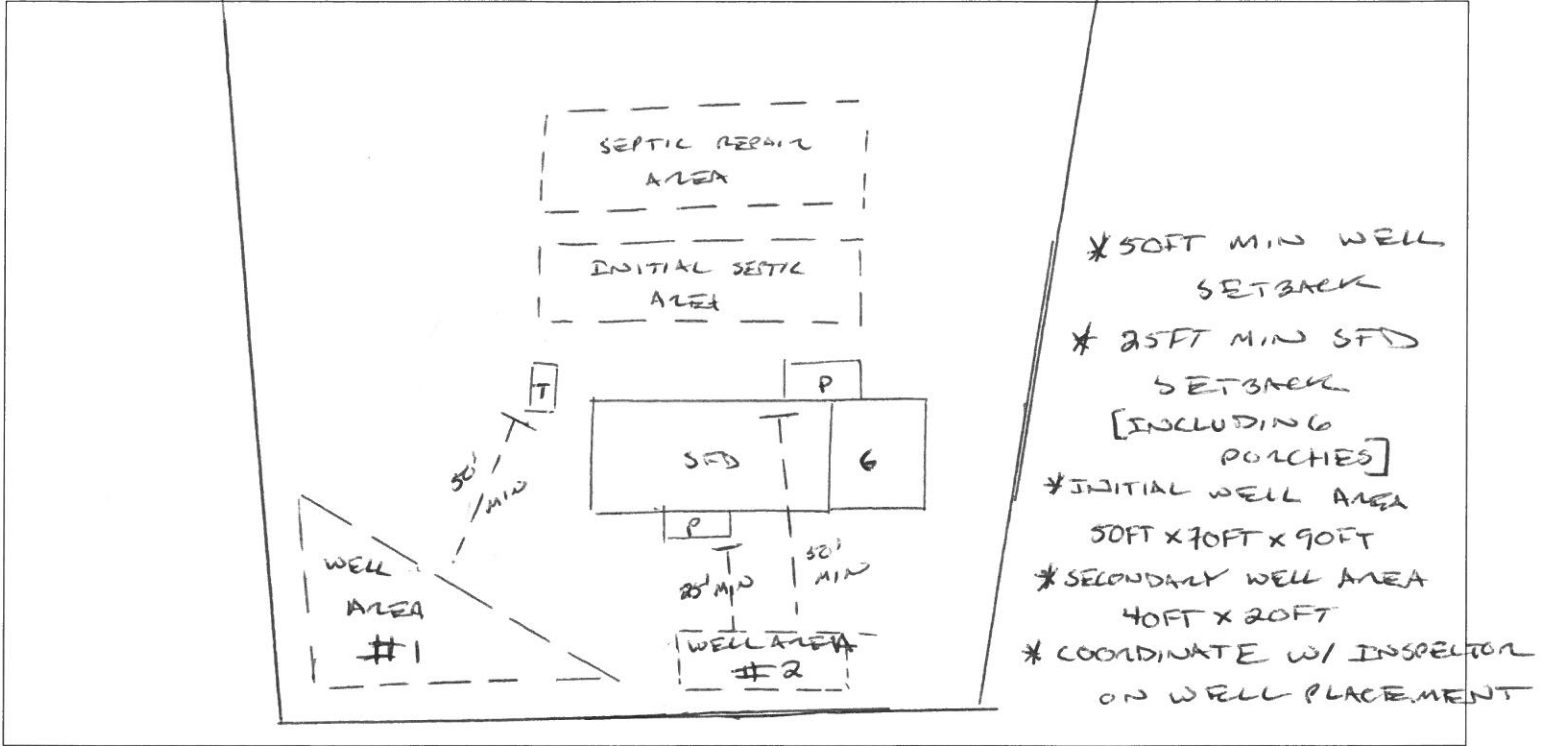 SEPTIC REPAIR
AREA
INITIAL SEPTIC
AREA
T
P
SFD
G
P
50'
MIN
25' MIN
50'
MIN
WELL
AREA
#1
WELL AREA
#2
* 50FT MIN WELL
SETBACK
* 25FT MIN SFD
SETBACK
[INCLUDING
PORCHES]
* INITIAL WELL AREA
50FT x 70FT x 90FT
* SECONDARY WELL AREA
40FT x 20FT
* COORDINATE W/ INSPECTOR
ON WELL PLACEMENT